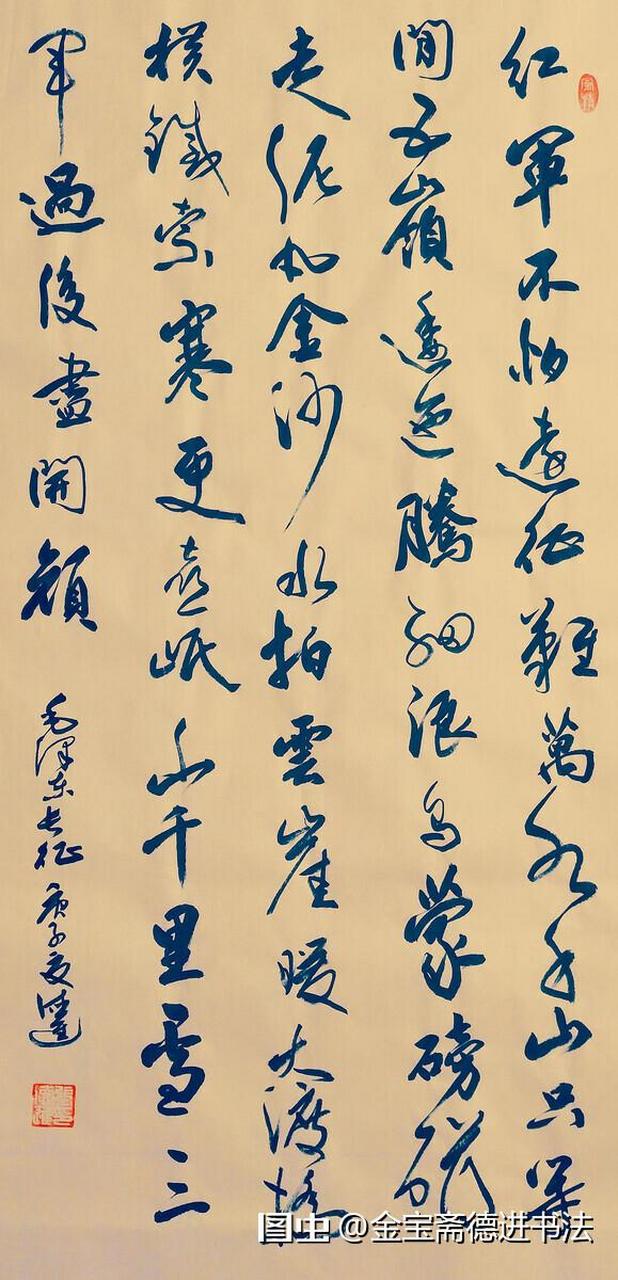 红軍不怕遠征難萬水千山只等
閒五嶺逶迤騰細浪烏蒙磅礴
走泥丸金沙水拍雲崖暖大渡橋
横鐵索寒更喜岷山千里雪三
軍過後盡開顔
毛澤东长征 庚子夏德進
图虫@金宝斋德进书法